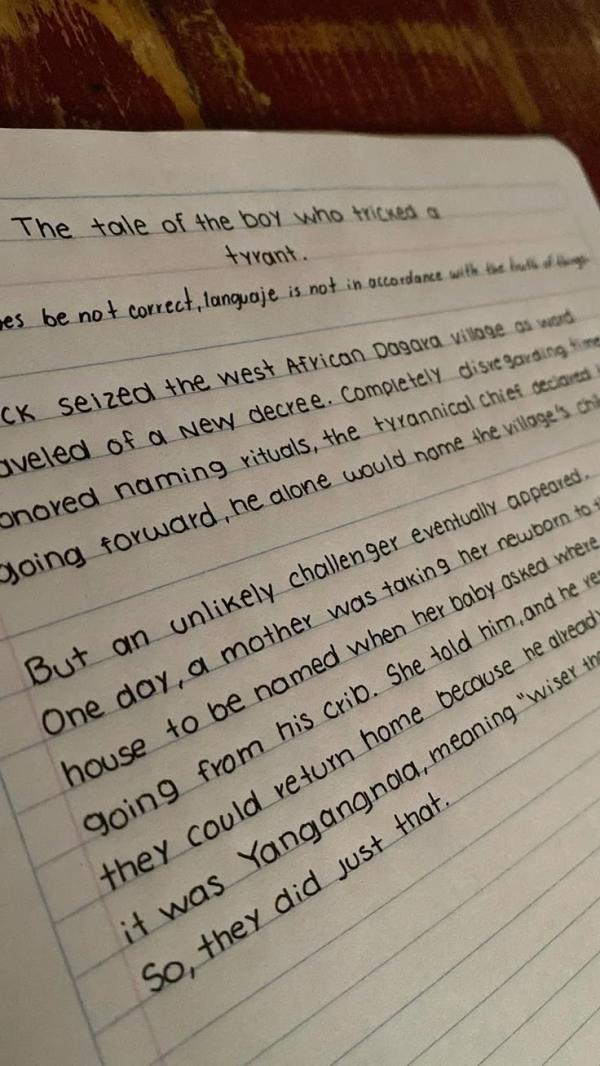 The tale of the boy who tricked a
tyrant.
es be not correct, languaje is not in accordance with the truth of things
CK seized the west African Dagara village as word
aveled of a New decree. Completely disregarding time
onored naming rituals, the tyrannical chief declared
going forward, he alone would name the village's chi
But an unlikely challenger eventually appeared.
One day, a mother was taking her newborn to t
house to be named when her baby asked where
going from his crib. She told him, and he re
they could return home because he already
it was Yangangnaa, meaning "wiser tha
So, they did just that.